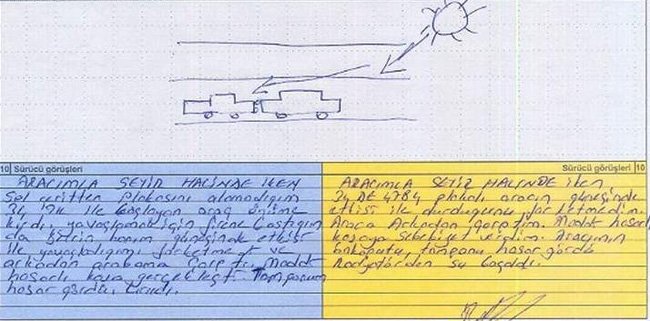 10 Sürücü görüşleri
ARACIMLA SEYİR HALİNDE İKEN
Sol şeritten plakasını alamadığım
34 ile başlayan araç önüme
kırdı, yavaşlamak için frene bastığım
da hanım güneşinde etkisi
ile yavaşladığımı farketmedi ve
arkadan arabama çarptı. Maddi
hasarlı kaza gerçekleşti. Tamponum
hasar gördü, kırıldı.
Sürücü görüşleri 10
ARACIMLA SEYİR HALİNDE İken
34 DE 4784 plakalı aracın güneşinde
etkisi ile durduğunu farketmedim.
Araca Arkadan çarptım. Maddi hasarlı
kazaya Sebebiyet verdim. Aracımın
kaputu, tamponu hasar gördü.
Radyatörden su boşaldı.